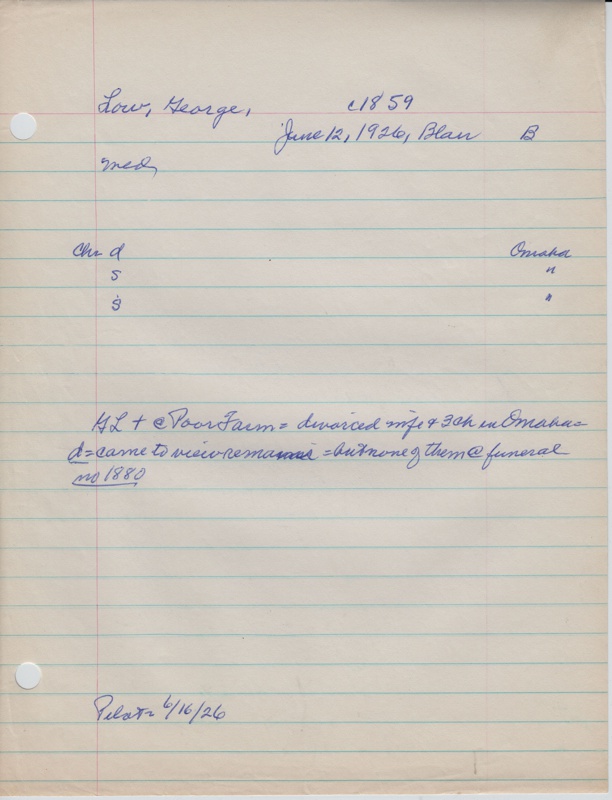 Low, George, c1859
June 12, 1926, Blair B
med,
Ch= d Omaha
s "
s "
GL + @ Poor Farm = divorced wife & 3 ch in Omaha =
d = came to view remains = but none of them @ funeral
no 1880
Pilot= 6/16/26